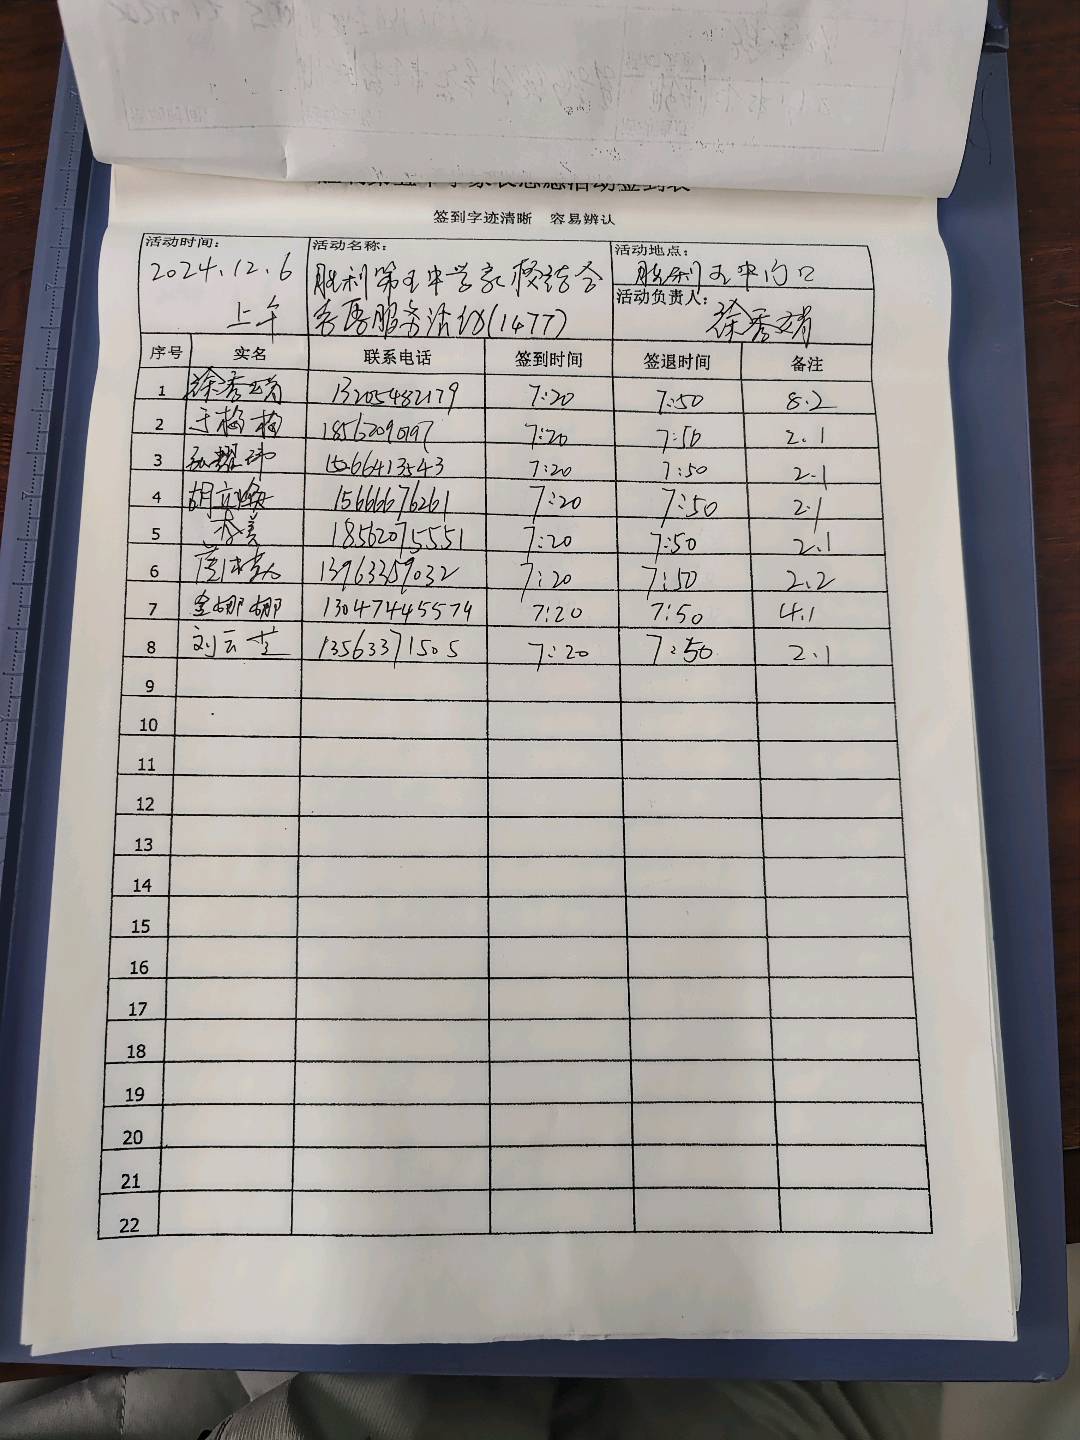 签到字迹清晰 容易辨认
活动时间： 活动名称： 活动地点：
2024.12.6 胜利第五中学家校结合 胜利五中门口
上午 志愿服务活动(1477) 活动负责人： 徐秀娟
序号 实名 联系电话 签到时间 签退时间 备注
1 徐秀娟 13205482179 7:20 7:50 8.2
2 于梅梅 7:20 7:50 2.1
3 15266413543 7:20 7:50 2.1
4 胡立焕 15666676261 7:20 7:50 2.1
5 李美 18562075551 7:20 7:50 2.1
6 13963359032 7:20 7:50 2.2
7 金娜娜 13047445574 7:20 7:50 4.1
8 刘云芝 13563371505 7:20 7:50 2.1
9
10
11
12
13
14
15
16
17
18
19
20
21
22